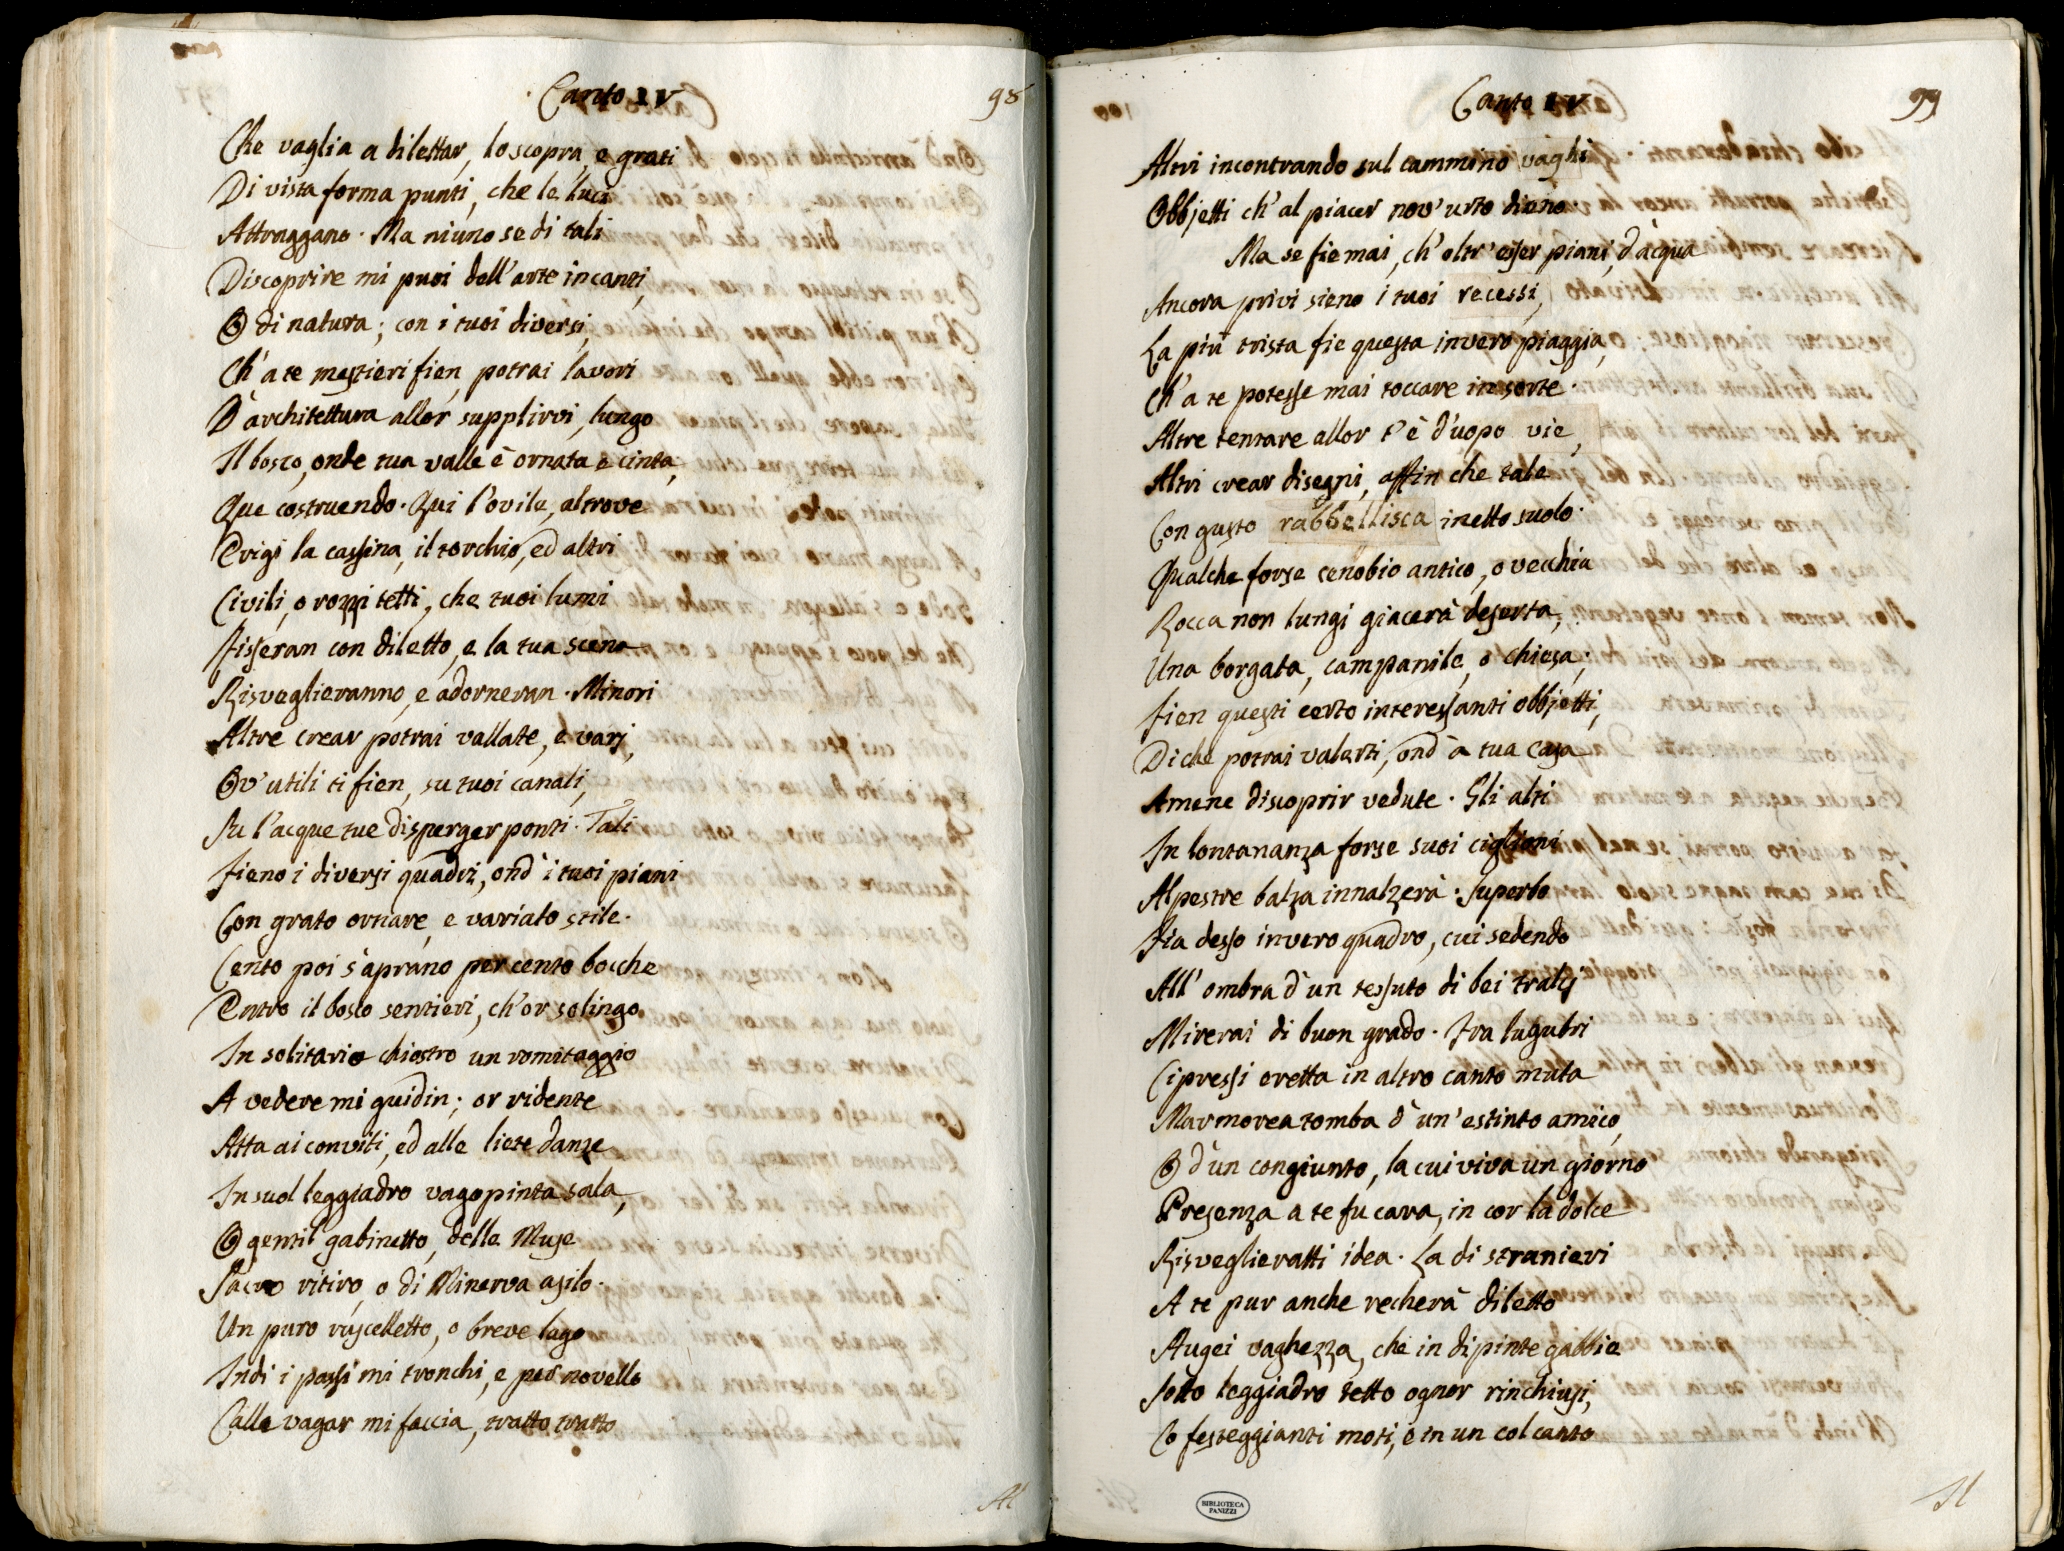 Canto IV
98
Che vaglia a dilettar, lo scopra, e grati
Di vista forma punti, che le luci
Attraggano. Ma niuno se di tali
Discoprire mi puoi dell'arte incanti,
O di natura; con i tuoi diversi,
Ch'a te mestieri fien, potrai lavori
D'architettura allor supplirvi, lungo
Il bosco, onde tua valle è ornata e cinta,
Que costruendo. Qui l'ovile, altrove
Erigi la cassina, il torchio, ed altri
Civili, o rozzi tetti, che tuoi lumi
Fisseran con diletto, e la tua scena
Risveglieranno, e adorneran. Minori
Altre crear potrai vallate, e varj,
Ov'utili ti fien, su tuoi canali,
Su l'acque tue disperger ponti. Tali
Fieno i diversi quadri, ond'i tuoi piani
Con grato ornare, e variato stile.
Cento poi s'aprano per cento bocche
Entro il bosco sentieri, ch'or solingo
In solitario chiostro un romitaggio
A vedere mi guidin; or ridente
Atta ai conviti, ed alle liete danze
In suol leggiadro vagopinta sala,
O gentil gabinetto, delle Muse
Sacro ritiro, o di Minerva asilo.
Un puro ruscelletto, o breve lago
Indi i passi mi tronchi, e per novello
Calle vagar mi faccia, tratto tratto
Al
Canto IV
99
Altri incontrando sul cammino vaghi
Obbjetti ch'al piacer nov'urto dieno.
Ma se fie mai, ch'oltr'esser piani, d'acqua
Ancora privi sieno i tuoi recessi,
La più trista fie questa invero piaggia,
Ch'a te potesse mai toccare in sorte.
Altre tentare allor t'è d'uopo vie,
Altri crear disegni, affin che tale
Con gusto rabbellisca inetto suolo.
Qualche forse cenobio antico, o vecchia
Rocca non lungi giacerà deserta,
Una borgata, campanile, o chiesa;
Fien questi certo interessanti obbjetti,
Di che potrai valerti, ond'a tua casa
Amene discoprir vedute. Gli alti
In lontananza forse suoi ciglioni
Alpestre balza innalzerà. Superbo
Fia desso invero quadro, cui sedendo
All'ombra d'un tessuto di bei tralcj
Mirerai di buon grado. Fra lugubri
Cipressi eretta in altro canto muta
Marmorea tomba d'un'estinto amico,
O d'un congiunto, la cui viva un giorno
Presenza a te fu cara, in cor la dolce
Risveglieratti idea. La di stranieri
A te pur anche recherà diletto
Augei vaghezza, che in dipinte gabbie
Sotto leggiadro tetto ognor rinchiusi,
Co festeggianti moti, e in un col canto
Il
BIBLIOTECA
PANIZZI